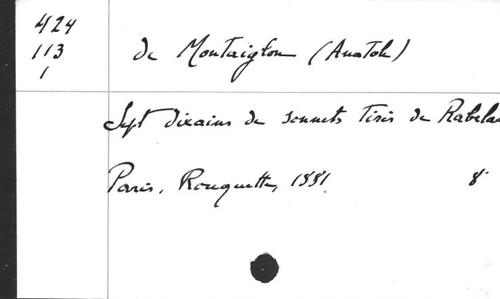 424
113
1
de Montaiglon (Anatole)
Sept dixains de sonnets tirés de Rabelai
Paris, Rouquette, 1881 8°